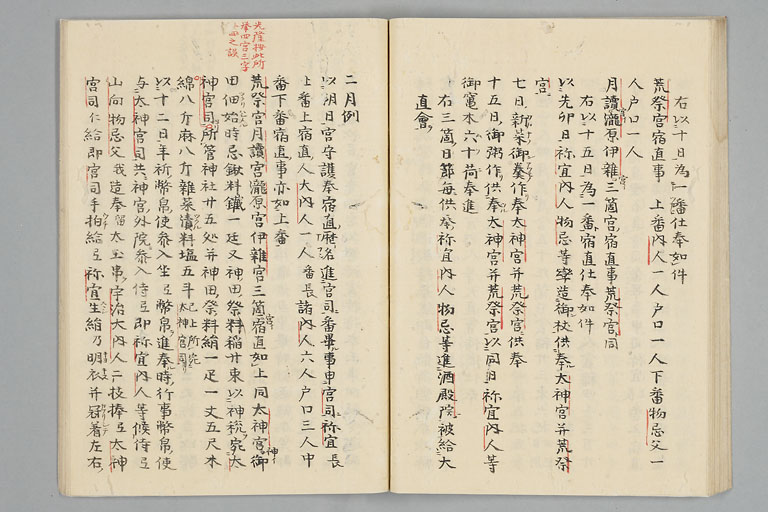 右以十日為一番仕奉如件
荒祭宮宿直事 上番内人一人戸口一人下番物忌父一
人戸口一人
月讀瀧原伊雜三箇宮宿直事荒祭宮同
右以十五日為一番宿直仕奉如件
以先卯日祢宜内人物忌等率造御杖供奉太神宮并荒祭
宮
七日新菜御羹作奉太神宮并荒祭宮供奉
十五日御粥作供奉太神宮并荒祭宮以同日祢宜内人等
御竃木六十荷奉進
右三箇日節毎供奉祢宜内人物忌等進酒殿院被給大
直會
光隆按此所
奉四宮三字
二月例
以朔日宮守護奉宿直歴名進宮司番畢事申宮司祢宜長
上番上宿直人大内人一人番長諸内人六人戸口三人中
番下番宿直事亦如上番
荒祭宮月讀宮瀧原宮伊雜宮三箇宿直如上同太神宮御
田佃始時忌鍬料鐵一廷又神田祭料稲廾束以神税宛太
神宮司所管神社廾五処并神田祭料絹一疋一丈五尺木
綿八斤麻八斤雜菜漬料塩五斗已上所宛太神宮司
以十二日年祈幣帛使参入坐弖幣帛進奉時行事幣帛使
与太神宮司共神宮外院参入侍弖即祢宜内人等候侍弖
山向物忌父我造奉留太玉串宇治大内人二枝捧弖太神
宮司仁給即宮司手拍給弖祢宜生絹乃明衣并冠着左右